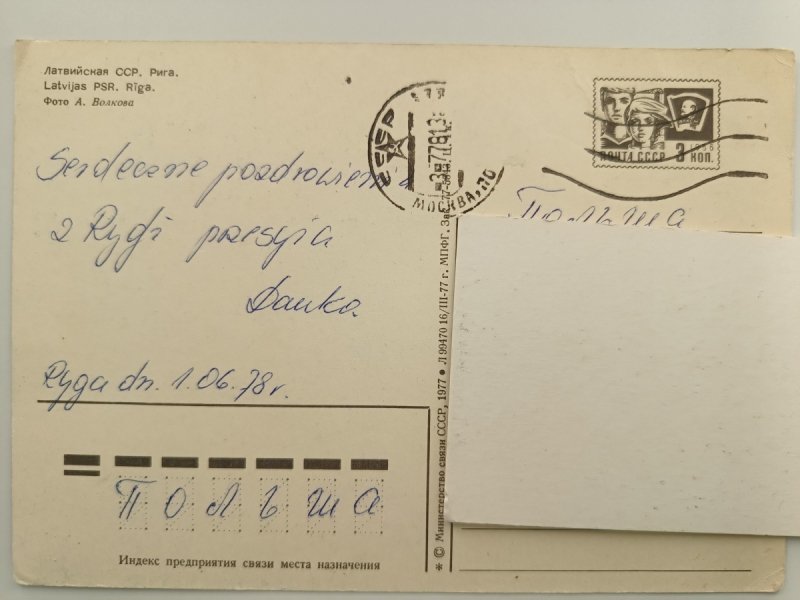 Латвийская ССР. Рига.
Latvijas PSR. Rīga.
Фото А. Волкова
Serdeczne pozdrowienia
z Rygi przesyła
Danka.
Ryga dn. 1.06.78 r.
СССР
МОСКВА, ПО
ПОЧТА СССР 3 КОП.
1966
Польша
* © Министерство связи СССР, 1977 • Л 99470 16/III-77 г. МПФГ.
Польша
Индекс предприятия связи места назначения